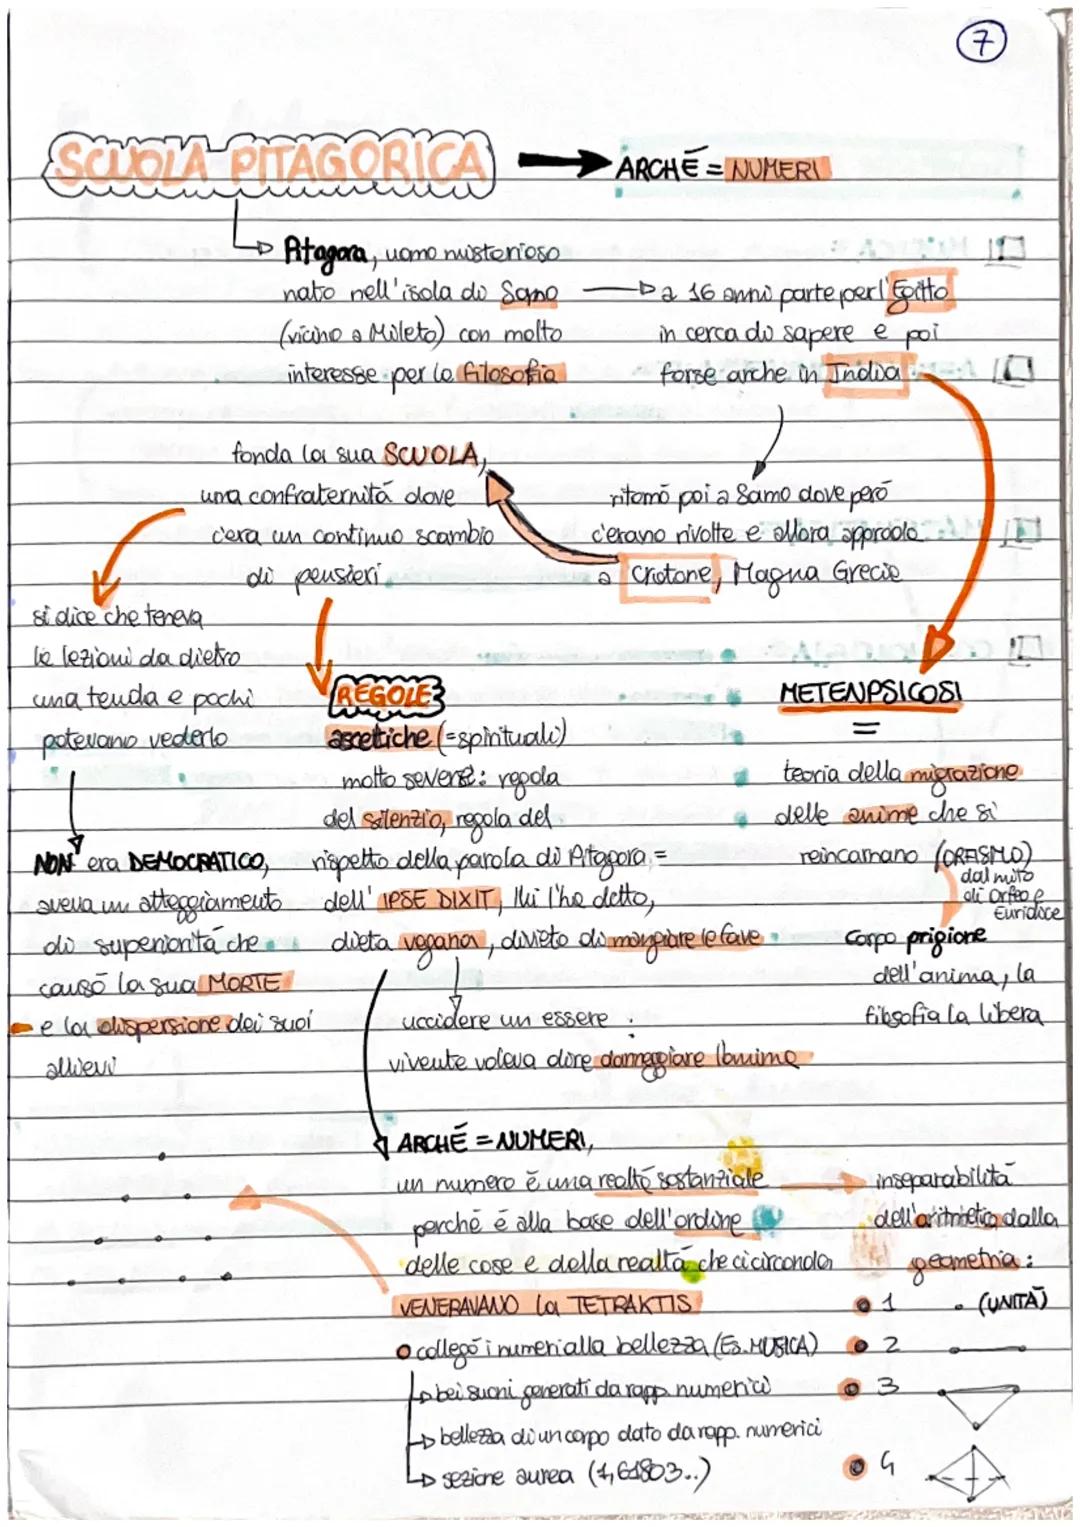 7
SCUOLA PITAGORICA
ARCHÉ = NUMERI
Pitagora, uomo misterioso
nato nell'isola di Samo
(vicino a Mileto) con molto
interesse per la filosofia
a 16 anni parte per l'Egitto
in cerca di sapere e poi
forse anche in India
ritornò poi a Samo dove però
c'erano rivolte e allora approda
a Crotone, Magna Grecia
fonda la sua SCUOLA,
una confraternità dove
c'era un continuo scambio
di pensieri
si dice che teneva
le lezioni da dietro
una tenda e pochi
potevano vederlo
NON era DEMOCRATICO,
aveva un atteggiamento
di superiorità che
causò la sua MORTE
e la dispersione dei suoi
allievi
REGOLE
ascetiche (=spirituali)
molto severe: regola
del silenzio, regola del
rispetto della parola di Pitagora =
dell' IPSE DIXIT, lui l'ha detto,
dieta vegana, divieto di mangiare le fave
uccidere un essere
vivente voleva dire danneggiare l'anima
METENPSICOSI
=
teoria della migrazione
delle anime che si
reincarnano (ORFISMO)
dal mito
di Orfeo e
Euridice
corpo prigione
dell'anima, la
filosofia la libera
ARCHÉ = NUMERI,
un numero è una realtà sostanziale
perché è alla base dell'ordine
delle cose e della realtà che ci circonda
VENERAVANO la TETRAKTIS
collegò i numeri alla bellezza (Es. MUSICA)
bei suoni generati da rapp. numerici
bellezza di un corpo dato da rapp. numerici
sezione aurea (1,61803..)
inseparabilità
dell'aritmetica dalla
geometria:
1 . (UNITÀ)
2
3
4